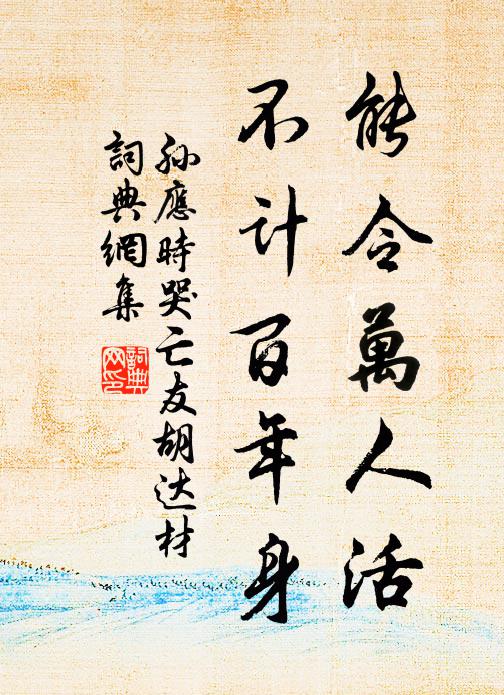 能令萬人活
不計百年身
孙應時哭亡友胡达材
詞典網集
詞典
网印